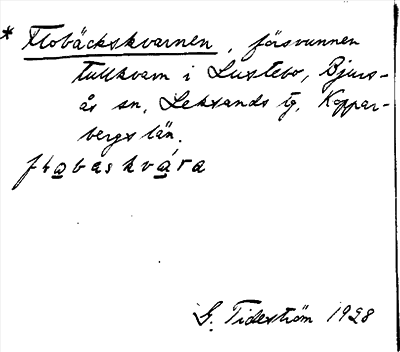 * Flobäckskvarnen, försvunnen
tullkvarn i Lustebo, Bjurs-
ås sn, Leksands tg, Koppar-
bergs län.
G. Tideström 1928